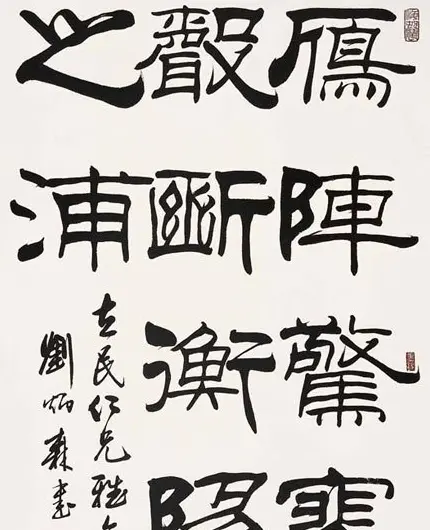 鴈陣驚寒
聲斷衡陽
之浦
立民仁兄雅
劉炳森書